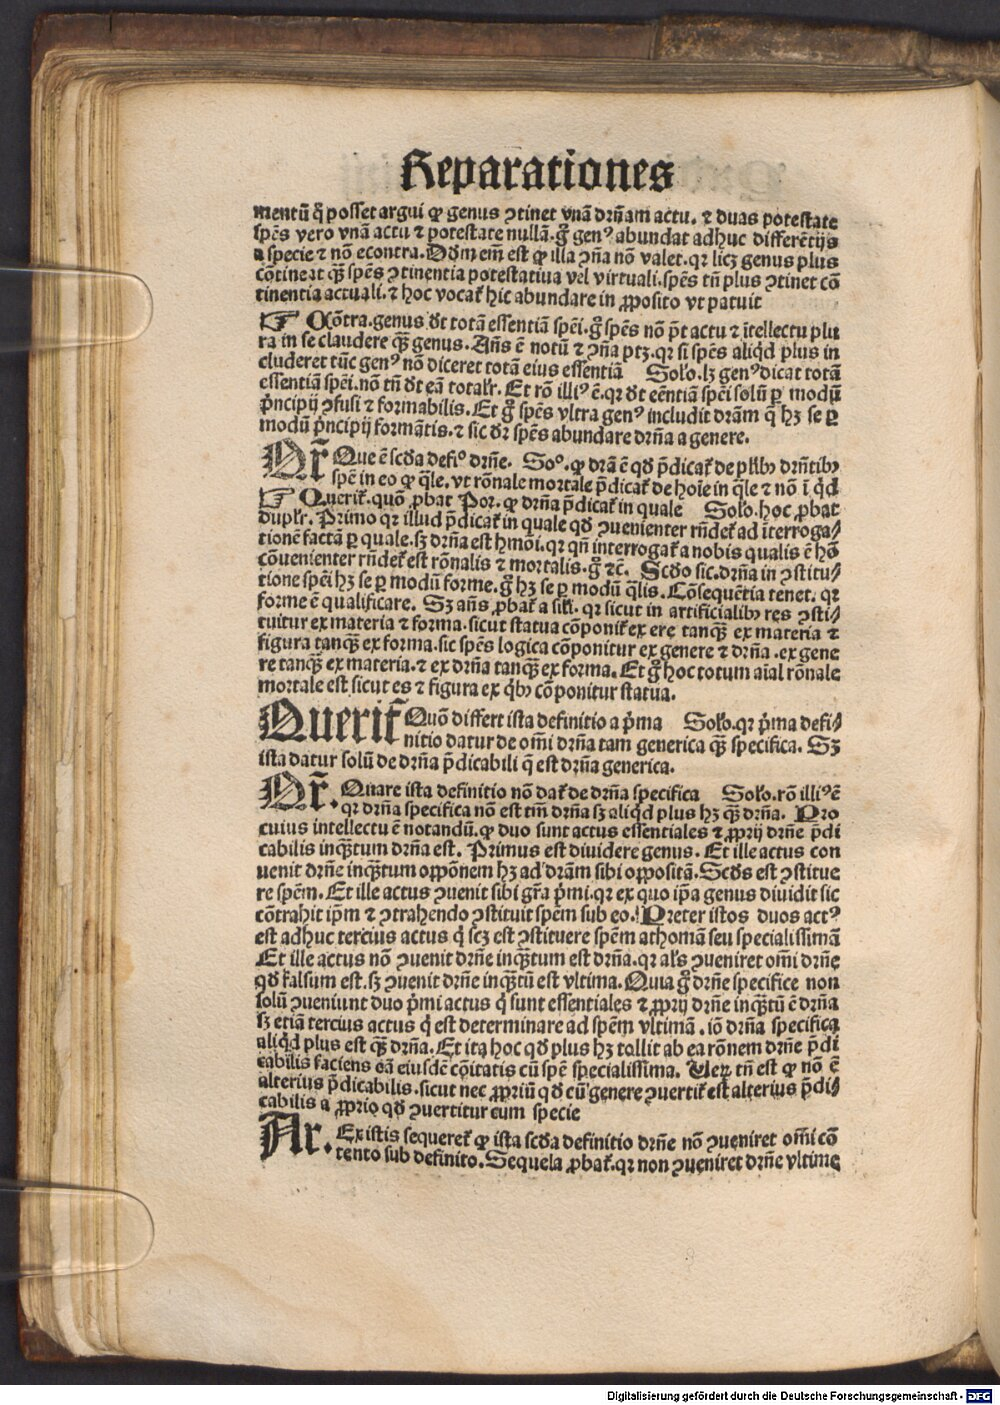 Reparationes
mentū q̄ posset argui qꝙ genus ↄtinet vnā drn̄am actu. ⁊ duas potestate
spēs vero vnā actu ⁊ potestate nullā. g̊ genꝰ abundat adhuc differētijs
a specie ⁊ nō econtra. Ddm em̄ est ꝙ illa ↄn̄a nō valet. qꝛ licꝫ genus plus
cōtineat qꝫ̄ spēs ↄtinentia potestatiua vel virtuali. spēs tn̄ plus ↄtinet cō
tinentia actuali. ⁊ hoc vocat᷑ hic abundare in ꝓposito vt patuit
☞ Cōtra. genus dt totā essentiā spēi. g̊ spēs nō pt̄ actu ⁊ ītellectu plu
ra in se claudere qꝫ̄ genus. Añs ē notū ⁊ ↄn̄a ptꝫ. qꝛ si spēs aliqd̓ plus in
cluderet tūc genꝰ nō diceret totā eius essentiā Solo. lꝫ genꝰ dicat totā
essentiā spēi. nō tn̄ dt eā totalr̄. Et rō illiꝰ ē. qꝛ dt eēntiā spēi solū ꝑ modū
p̄ncipij ↄfusi ⁊ formabilis. Et g̊ spēs vltra genꝰ includit drāᷓm q̄ hꝫ se ꝑ
modū p̄ncipij formātis. ⁊ sic dꝛ spēs abundare drn̄a a genere.
Qr̄ Que ē scd̓a defiº drn̄e. Soº. ꝙ drā ē qd̓ p̄dicat᷑ de plībꝫ drn̄tibꝫ
spē in eo ꝙ q̄le. vt rōnale mortale p̄dicat᷑ de hoīe in q̄le ⁊ nō ī q̓d
☞ Querit᷑. quō ꝓbat Por. ꝙ drn̄a p̄dicat᷑ in quale Solo. hoc ꝓbat
duplr̄. Primo qꝛ illud p̄dicat᷑ in quale qd̓ ↄuenienter rn̄det᷑ ad īterroga⸗
tionē factā ꝑ quale. sꝫ drn̄a est hmōi. qꝛ qn̄ interrogat᷑ a nobis qualis ē hō
cōuenienter rn̄det᷑ est rōnalis ⁊ mortalis. g̊ ⁊c̄. Scd̓o sic. drn̄a in ↄstitu⸗
tione spēi hꝫ se ꝑ modū forme. g̊ hꝫ se ꝑ modū q̄lis. Cōsequētia tenet. qꝛ
forme ē qualificare. Sꝫ añs ꝓbat᷑ a sili. qꝛ sicut in artificialibꝫ res ↄsti⸗
tuitur ex materia ⁊ forma. sicut statua cōponit᷑ ex ere tanqꝫ̄ ex materia ⁊
figura tanqꝫ̄ ex forma. sic spēs logica cōponitur ex genere ⁊ drn̄a . ex gene
re tanqꝫ̄ ex materia. ⁊ ex drn̄a tanqꝫ̄ ex forma. Et g̊ hoc totum aīal rōnale
mortale est sicut es ⁊ figura ex qͥbꝫ cōponitur statua.
Querit᷑ Quō differt ista definitio a p̄ma Solo. qꝛ p̄ma defi⸗
nitio datur de omi drn̄a tam generica qꝫ̄ specifica. Sꝫ
ista datur solū de drn̄a p̄dicabili q̄ est drn̄a generica.
Qr̄. Quare ista definitio nō dat᷑ de drn̄a specifica Solo. rō illiꝰ ē
qꝛ drn̄a specifica nō est tm̄ drn̄a sꝫ aliqd̓ plus hꝫ qꝫ̄ drn̄a. Pro
cuius intellectu ē notandū. ꝙ duo sunt actus essentiales ⁊ ꝓprij drn̄e p̄di
cabilis inqꝫ̄tum drn̄a est. Primus est diuidere genus. Et ille actus con
uenit drn̄e inqꝫ̄tum oppōnem hꝫ ad drām sibi oppositā. Scd̓s est ↄstitue
re spēm. Et ille actus ↄuenit sibi gr̄a p̄mi. qꝛ ex quo ip̄a genus diuidit sic
cōtrahit ip̄m ⁊ ↄtrahendo ↄstituit spēm sub eo. Preter istos duos actꝰ
est adhuc tercius actus q̓ scꝫ est ↄstituere spēm athomā seu specialissimā
Et ille actus nō ↄuenit drn̄e inqꝫ̄tum est drn̄a. qꝛ als̄ ↄueniret om̄i drn̄e
qd̓ falsum est. sꝫ ↄuenit drn̄e inqꝫ̄tū est vltima. Quia g̊ drn̄e specifice non
solū ↄueniunt duo p̄mi actus q̓ sunt essentiales ⁊ ꝓprij drn̄e inqꝫ̄tū ē drn̄a
sꝫ etiā tercius actus q̓ est determinare ad spēm vltimā . iō drn̄a specifica
aliqd̓ plus est qꝫ̄ drn̄a. Et ita hoc qd̓ plus hꝫ tollit ab ea rōnem drn̄e p̄di
cabilis faciens eā eiusdē cōitatis cū spē specialissima. Veꝝ tn̄ est ꝙ nō ē
alterius p̄dicabilis. sicut nec ꝓpriū qd̓ cū genere ↄuertit᷑ est alterius p̄di⸗
cabilis a ꝓprio qd̓ ↄuertitur cum specie
Ar. Ex istis sequeret᷑ ꝙ ista scd̓a definitio drn̄e nō ↄueniret om̄i cō
tento sub definito. Sequela ꝓbat᷑. qꝛ non ↄueniret drn̄e vltime
Digitalisierung gefördert durch die Deutsche Forschungsgemeinschaft - DFG